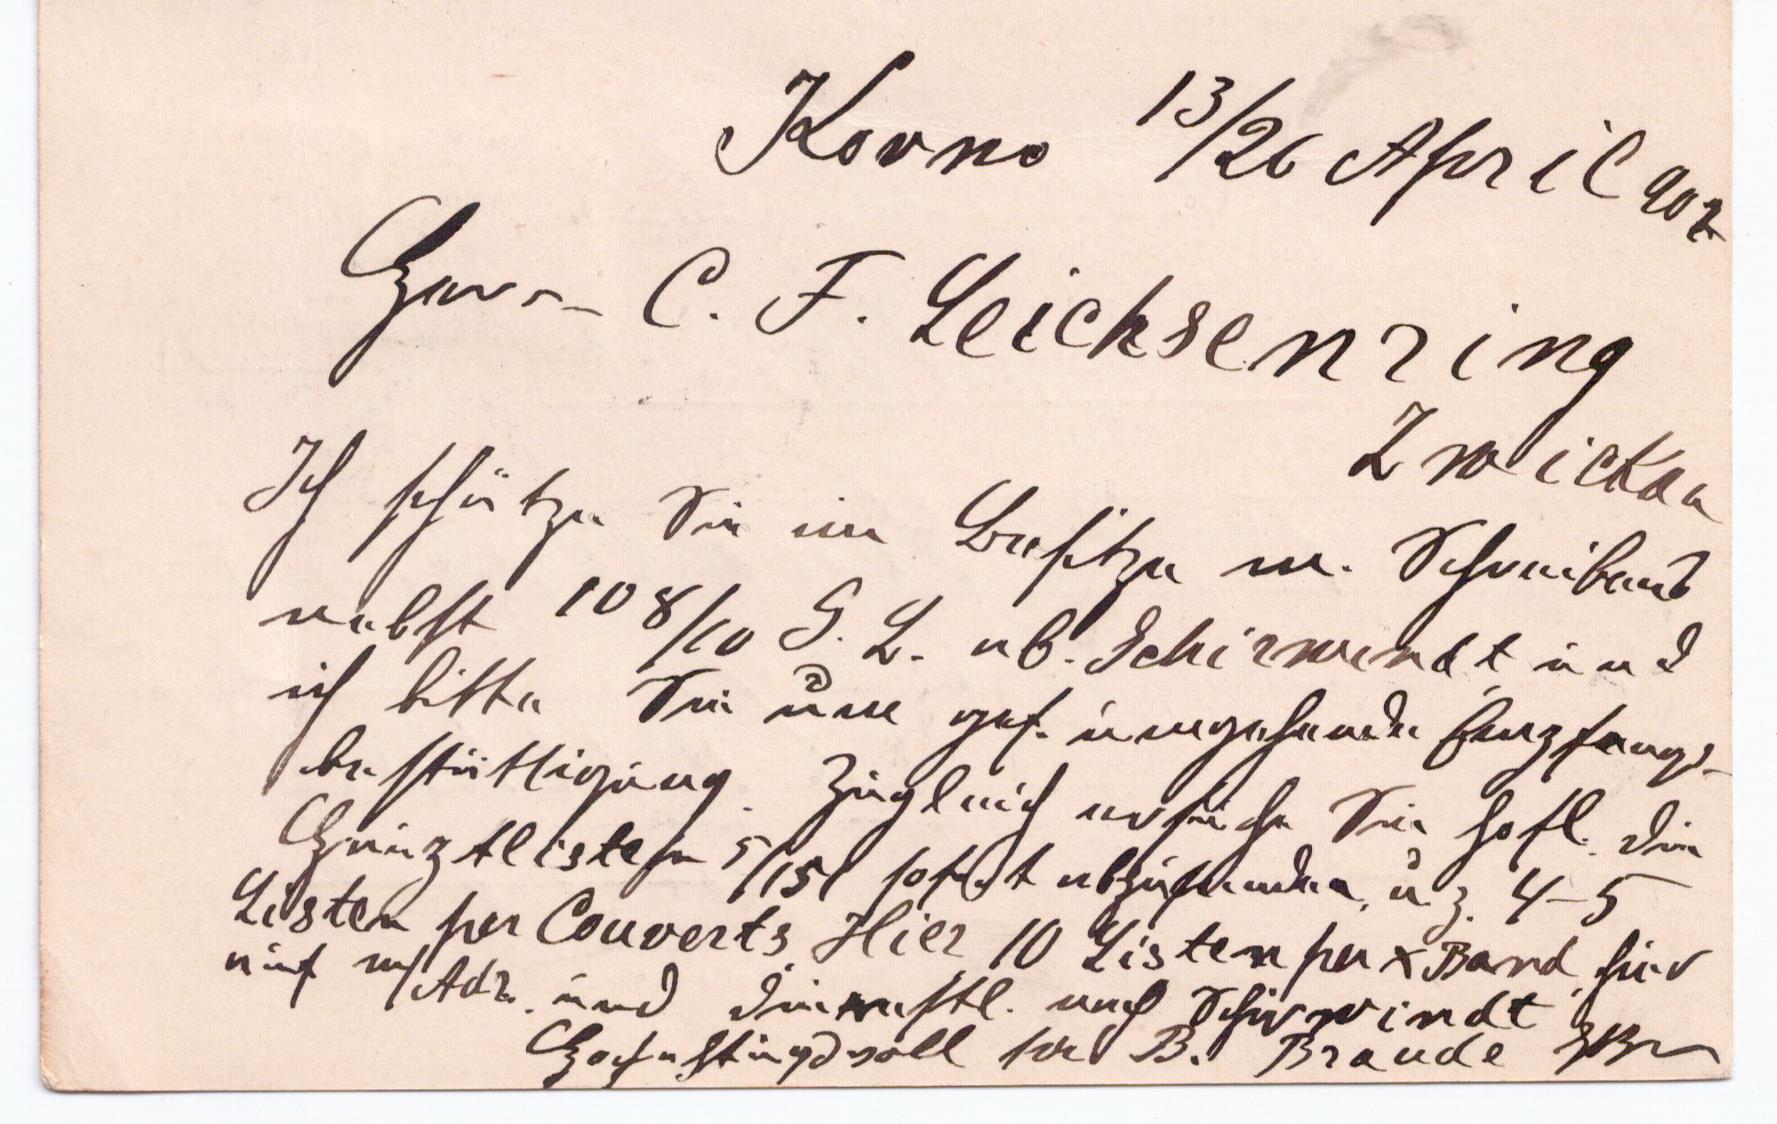 Kovno 13/26 April 902
Herrn C. F. Leichsenring
Zwickau
Ich schätze Sie im Besitze m. Schreibens
nebst 10 8/10 G. L. ab. Schirwindt und
ich bitte Sie um gef. umgehende Empfangs-
bestättigung. Zugleich ersuche Sie höfl. die
Hauptlisten 5/151 sofort abzusenden, u. z. 4-5
Listen per Couverts Hier 10 Listen per x Band hier
auf m/Adr. und die restl. nach Schirwindt
Hochachtungsvoll B. Braude